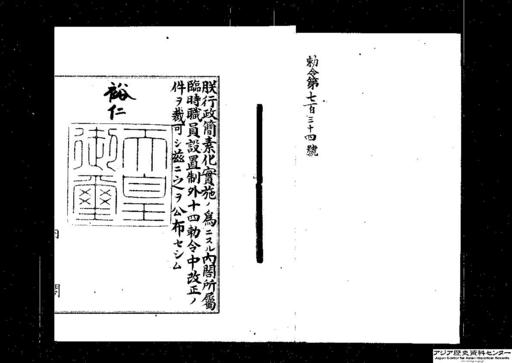 勅令第七百三十四號
朕行政簡素化實施ノ爲ニスル內閣所屬
臨時職員設置制外十四勅令中改正ノ
件ヲ裁可シ茲ニ之ヲ公布セシム
裕仁
天皇御璽
內閣
アジア歴史資料センター
Japan Center for Asian Historical Records